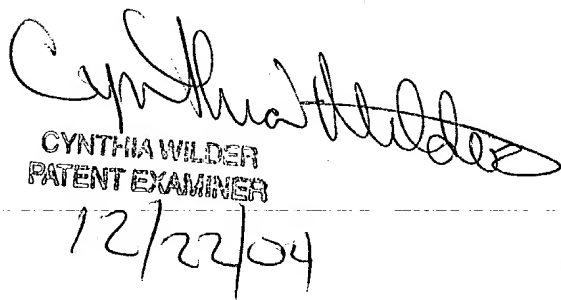 Cynthia Wilder
CYNTHIA WILDER
PATENT EXAMINER
12/22/04